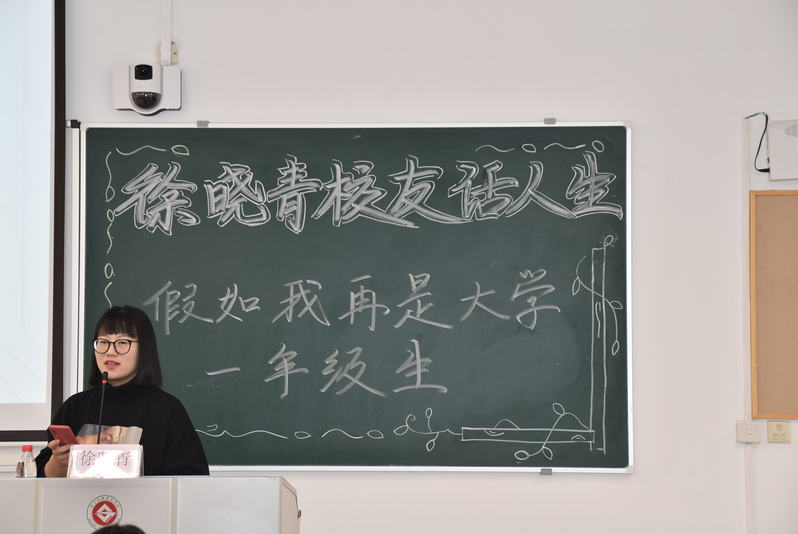 徐晓青校友话人生
假如我再是大学
一年级生
徐晓青